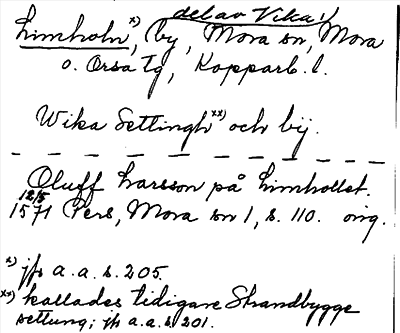 del av Vika!
Limholn x), by, Mora sn, Mora
o. Orsa tg, Kopparb. l.
Wika Settingh xx) och bij.
Oluff Larsson på Limhollet.
12/5
1571 Pers, Mora sn 1, s. 110. orig.
x) jfr a.a. s. 205.
xx) kallades tidigare Strandbygge
settung; jfr a.a. s. 201.